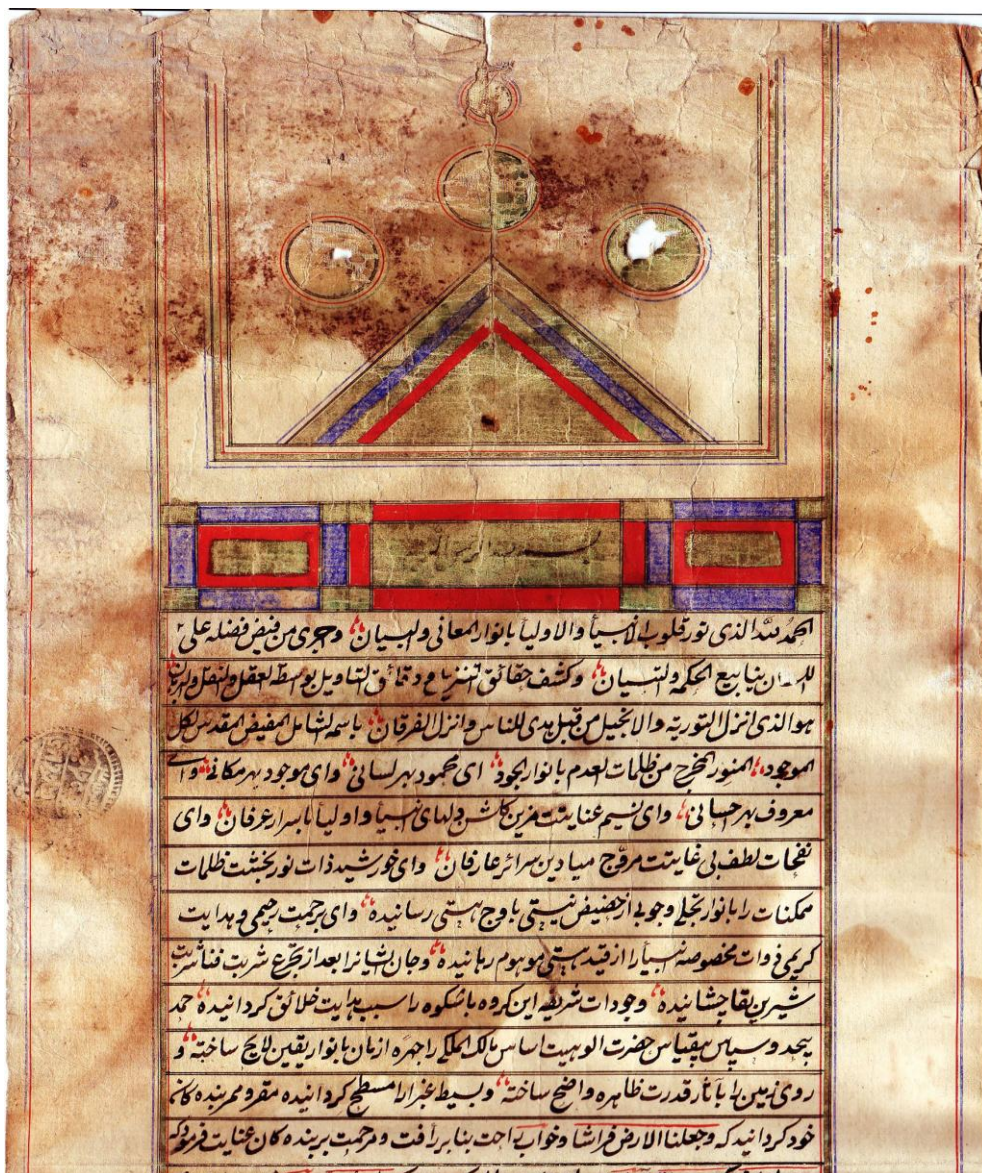 بسم الله الرحمن الر
الحمد لله الذی نور قلوب الانبیأ والاولیأ بانوار المعانی والبیان وجری من فیض فضله علی
ینابیع الحکمه والتبیان وکشف حقائق التنزیل مع دقائق التاویل بوسطة العقل والنقل
هو الذی انزل التوریه والانجیل من قبل هدی للناس وانزل الفرقان باسمه الشامل المفیض المقدس لکل
الموجود المنور المخرج من ظلمات العدم بانوار الجود ای محمود بهر لسانی وای موجود بهر مکانی وای
معروف بهر احسانی وای نسیم عنایتت مزین کلشن دلهای انبیأ واولیأ باسرار عرفان وای
نفحات لطف بی غایتت مروّج میادین سرائر عارفان وای خورشید ذات نوربخشت ظلمات
ممکنات را بانوار تجلی وجوبی از حضیض نیستی باوج هستی رسانیده وای برحمت رحیمی وهدایت
کریمی ذوات مخصوصه انبیأ را از قید هستی موهوم رهانیده وجان ایشانرا بعد از تجرع شربت فنا شربت
شیرین بقا چشانیده وجودات شریفه این کروه باشکوه را سبب هدایت خلائق کردانیده حمد
بیحد وسپاس بیقیاس حضرت الوهیت اساس مالک الملکی را چهره ازمان بانوار یقین لایح ساخته و
روی زمین را بآثار قدرت ظاهره واضح ساخته وبسیط غبرا را مسطح کردانیده مقر وممر بنده کانم
خود کردانید که وجعلنا الارض فراشا وخواب راحت بنا بر رأفت ومرحمت بر بنده کان عنایت فرموده که